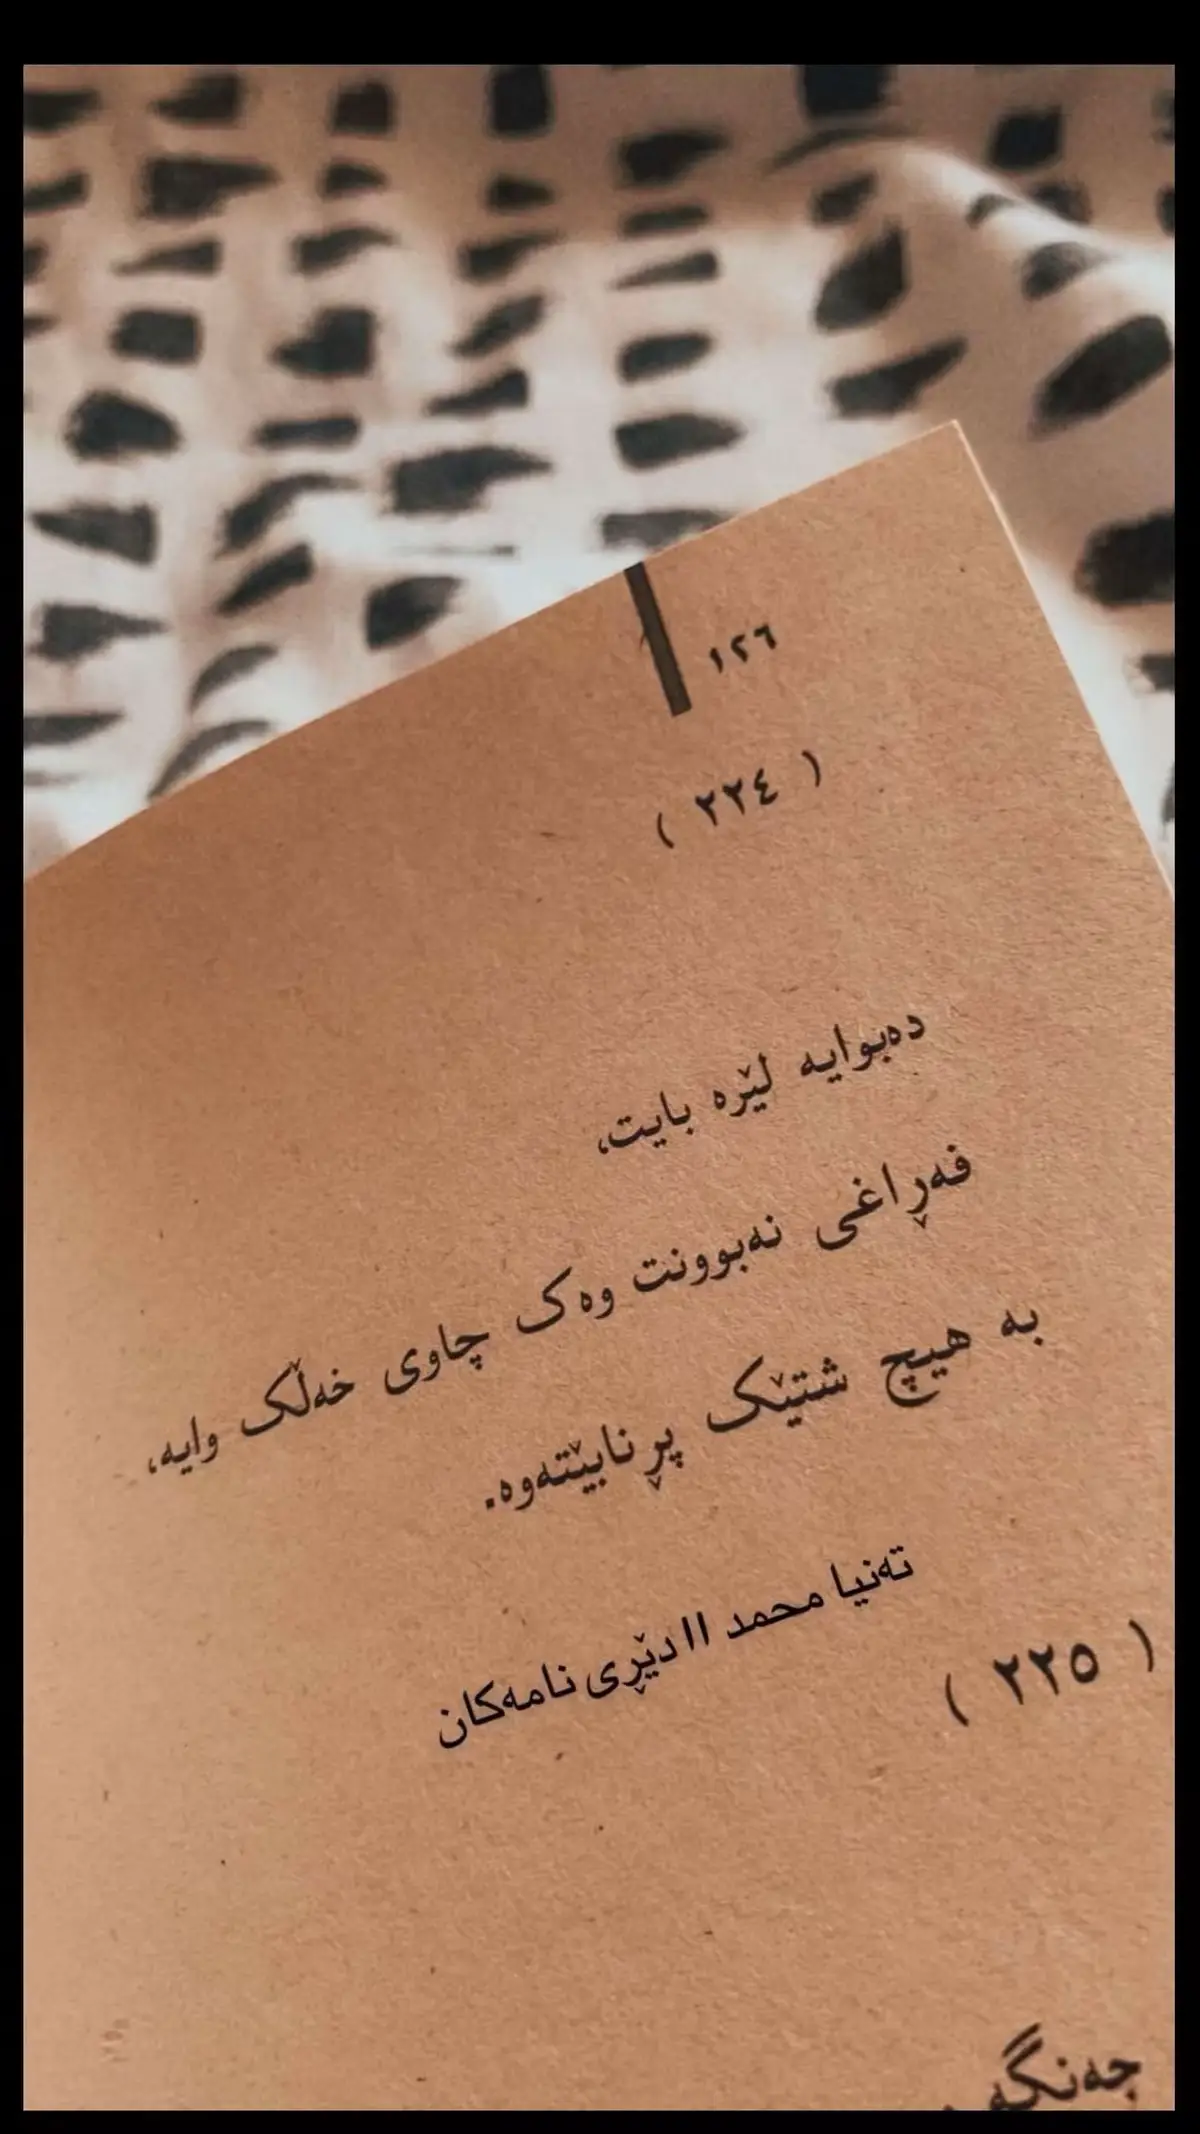 ١٢٦
( ٢٢٤ )
دەبوایە لێرە بایت،
فەڕاغی نەبوونت وەک چاوی خەڵک وایە،
بە هیچ شتێک پڕنابێتەوە.
تەنیا محمد || دێڕی نامەکان
( ٢٢٥ )
جەنگە